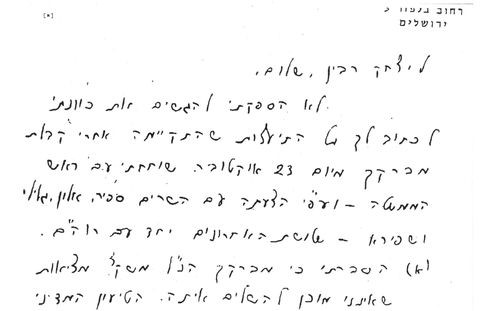 [*]
רחוב בלפור 3
ירושלים
ליצחק רבין, שלום,
לא הספקתי להגשים את כוונתי
לכתוב לך על התיעצות שהתקיימה אחרי קבלת
מברקך מיום 23 אוקטובר. שוחחתי עם ראש
הממשלה – ועפ״י הצעתה עם השרים ספיר, אלון, גלילי
ושפירא – שלושת האחרונים יחד עם רוה״מ.
(א) הסברתי כי מברקך הנ״ל משקף מציאות
שאינני מוכן להשלים איתה. הטיעון המדיני